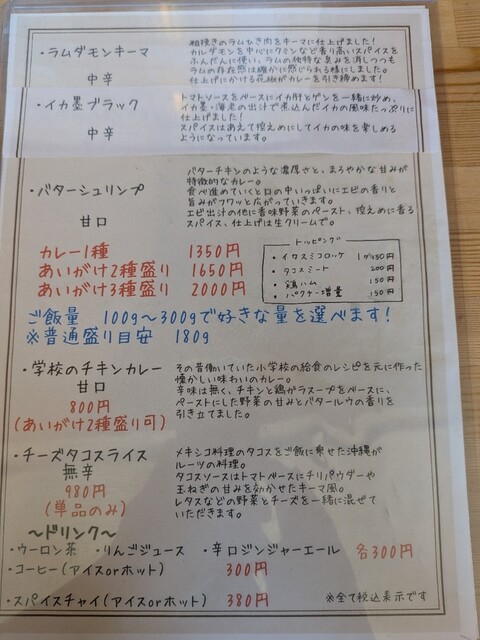 ・ラムダモンキーマ
中辛
粗挽きのラムひき肉をキーマに仕上げました!
カルダモンを中心にクミンなど香り高いスパイスを
ふんだんに使い、ラムの独特な臭みを消しつつも
ラムの存在感は確かに感じられる様にしました。
仕上げにかける花椒がカレーを引き締めます!
・イカ墨ブラック
中辛
トマトソースをベースにイカ肝とゲソを一緒に炒め、
イカ墨・海老の出汁で煮込んだイカの風味たっぷりに
仕上げました!
スパイスはあえて控えめにしてイカの味を楽しめる
ようになっています。
・バターシュリンプ
甘口
バターチキンのような濃厚さと、まろやかな甘みが
特徴的なカレー。
食べ進めていくと口の中いっぱいにエビの香りと
旨みがフワッと広がっていきます。
エビ出汁の他に香味野菜のペースト、控えめに香る
スパイス、仕上げは生クリームで。
カレー1種 1350円
あいがけ2種盛り 1650円
あいがけ3種盛り 2000円
トッピング
・イカスミコロッケ 1ケ450円
・タコスミート 200円
・鶏ハム 150円
・パクチー増量 150円
ご飯量 100g〜300gで好きな量を選べます!
※普通盛り目安 180g
・学校のチキンカレー
甘口
800円
(あいがけ2種盛り可)
その昔働いていた小学校の給食のレシピを元に作った
懐かしい味わいのカレー。
辛味は無く、チキンと鶏がらスープをベースに、
ペーストにした野菜の甘みとバタールウの香りを
引き立てました。
・チーズタコスライス
無辛
980円
(単品のみ)
メキシコ料理のタコスをご飯に乗せた沖縄が
ルーツの料理。
タコスソースはトマトベースにチリパウダーや
玉ねぎの甘みを効かせたキーマ風。
レタスなどの野菜とチーズを一緒に混ぜて
いただきます。
〜ドリンク〜
・ウーロン茶 ・りんごジュース ・辛口ジンジャーエール 各300円
・コーヒー(アイスorホット) 300円
・スパイスチャイ(アイスorホット) 380円
※全て税込表示です